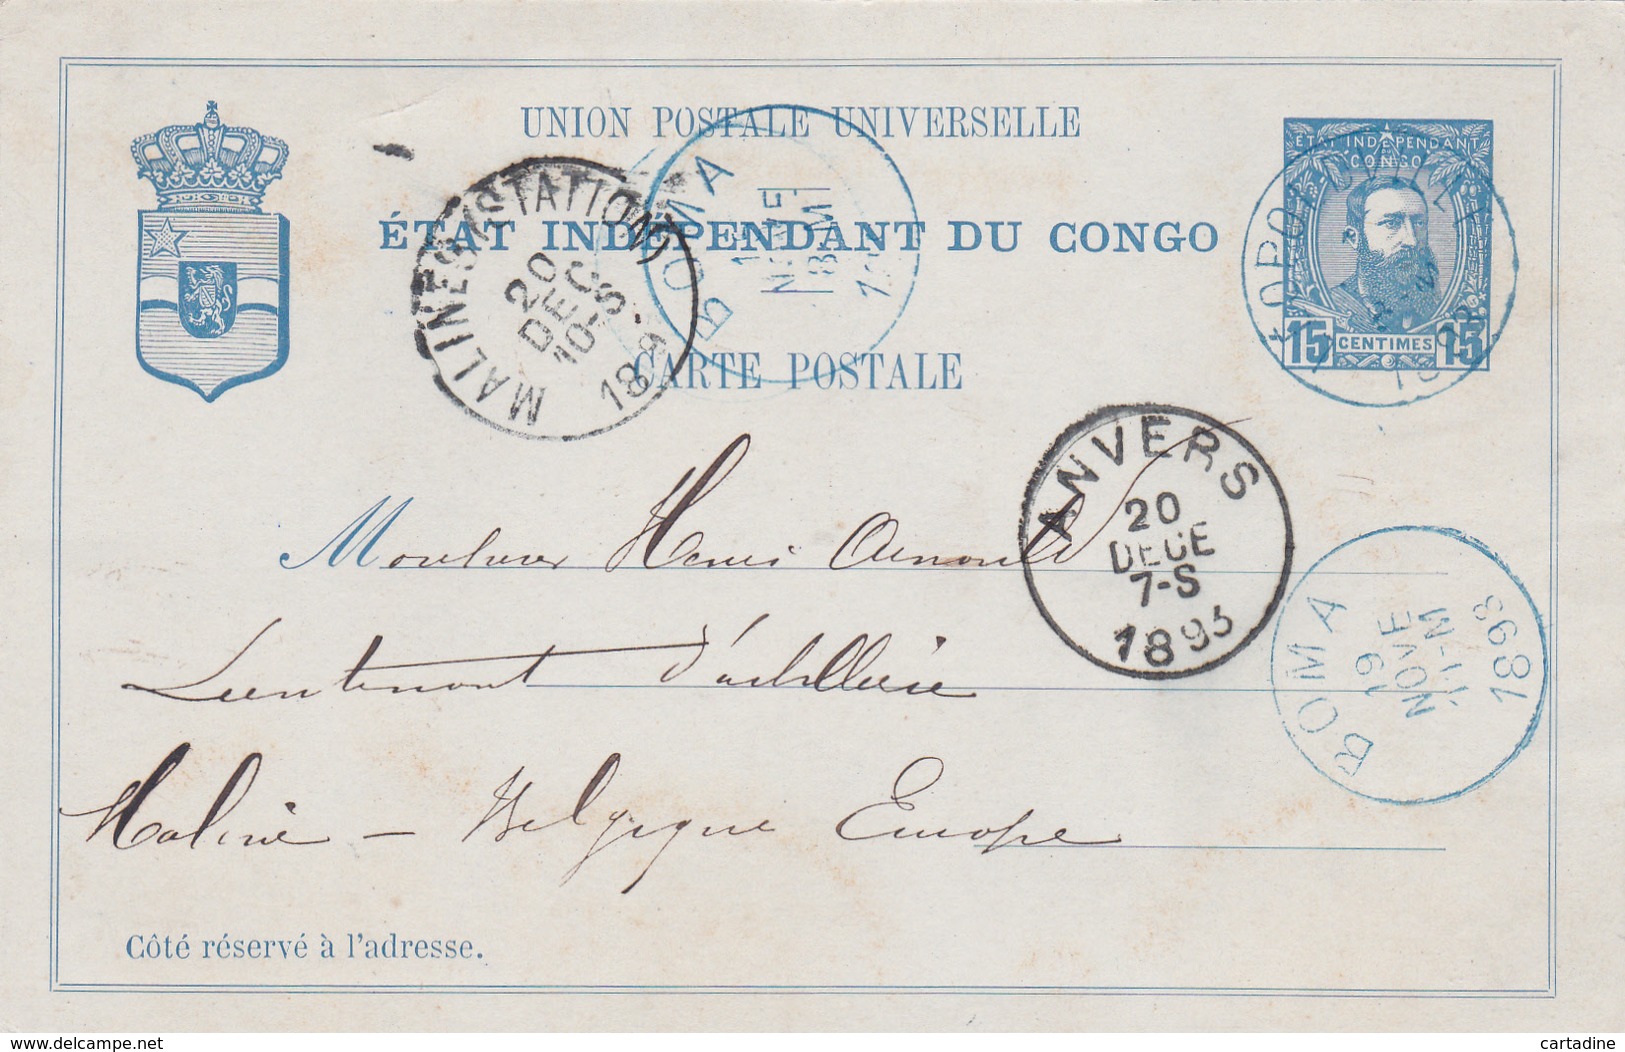 UNION POSTALE UNIVERSELLE
ÉTAT INDÉPENDANT DU CONGO
CARTE POSTALE
ÉTAT INDÉPENDANT
CONGO
15 CENTIMES 15
MALINES (STATION)
20
DEC
10-S
189
BOMA
NOVE
ANVERS
20
DECE
7-S
1893
BOMA
19
NOVE
11-M
1893
Monsieur Henri Arnould
Lieutenant d'artillerie
Maline – Belgique Europe
Côté réservé à l'adresse.
https://www.delcampe.net
cartadine